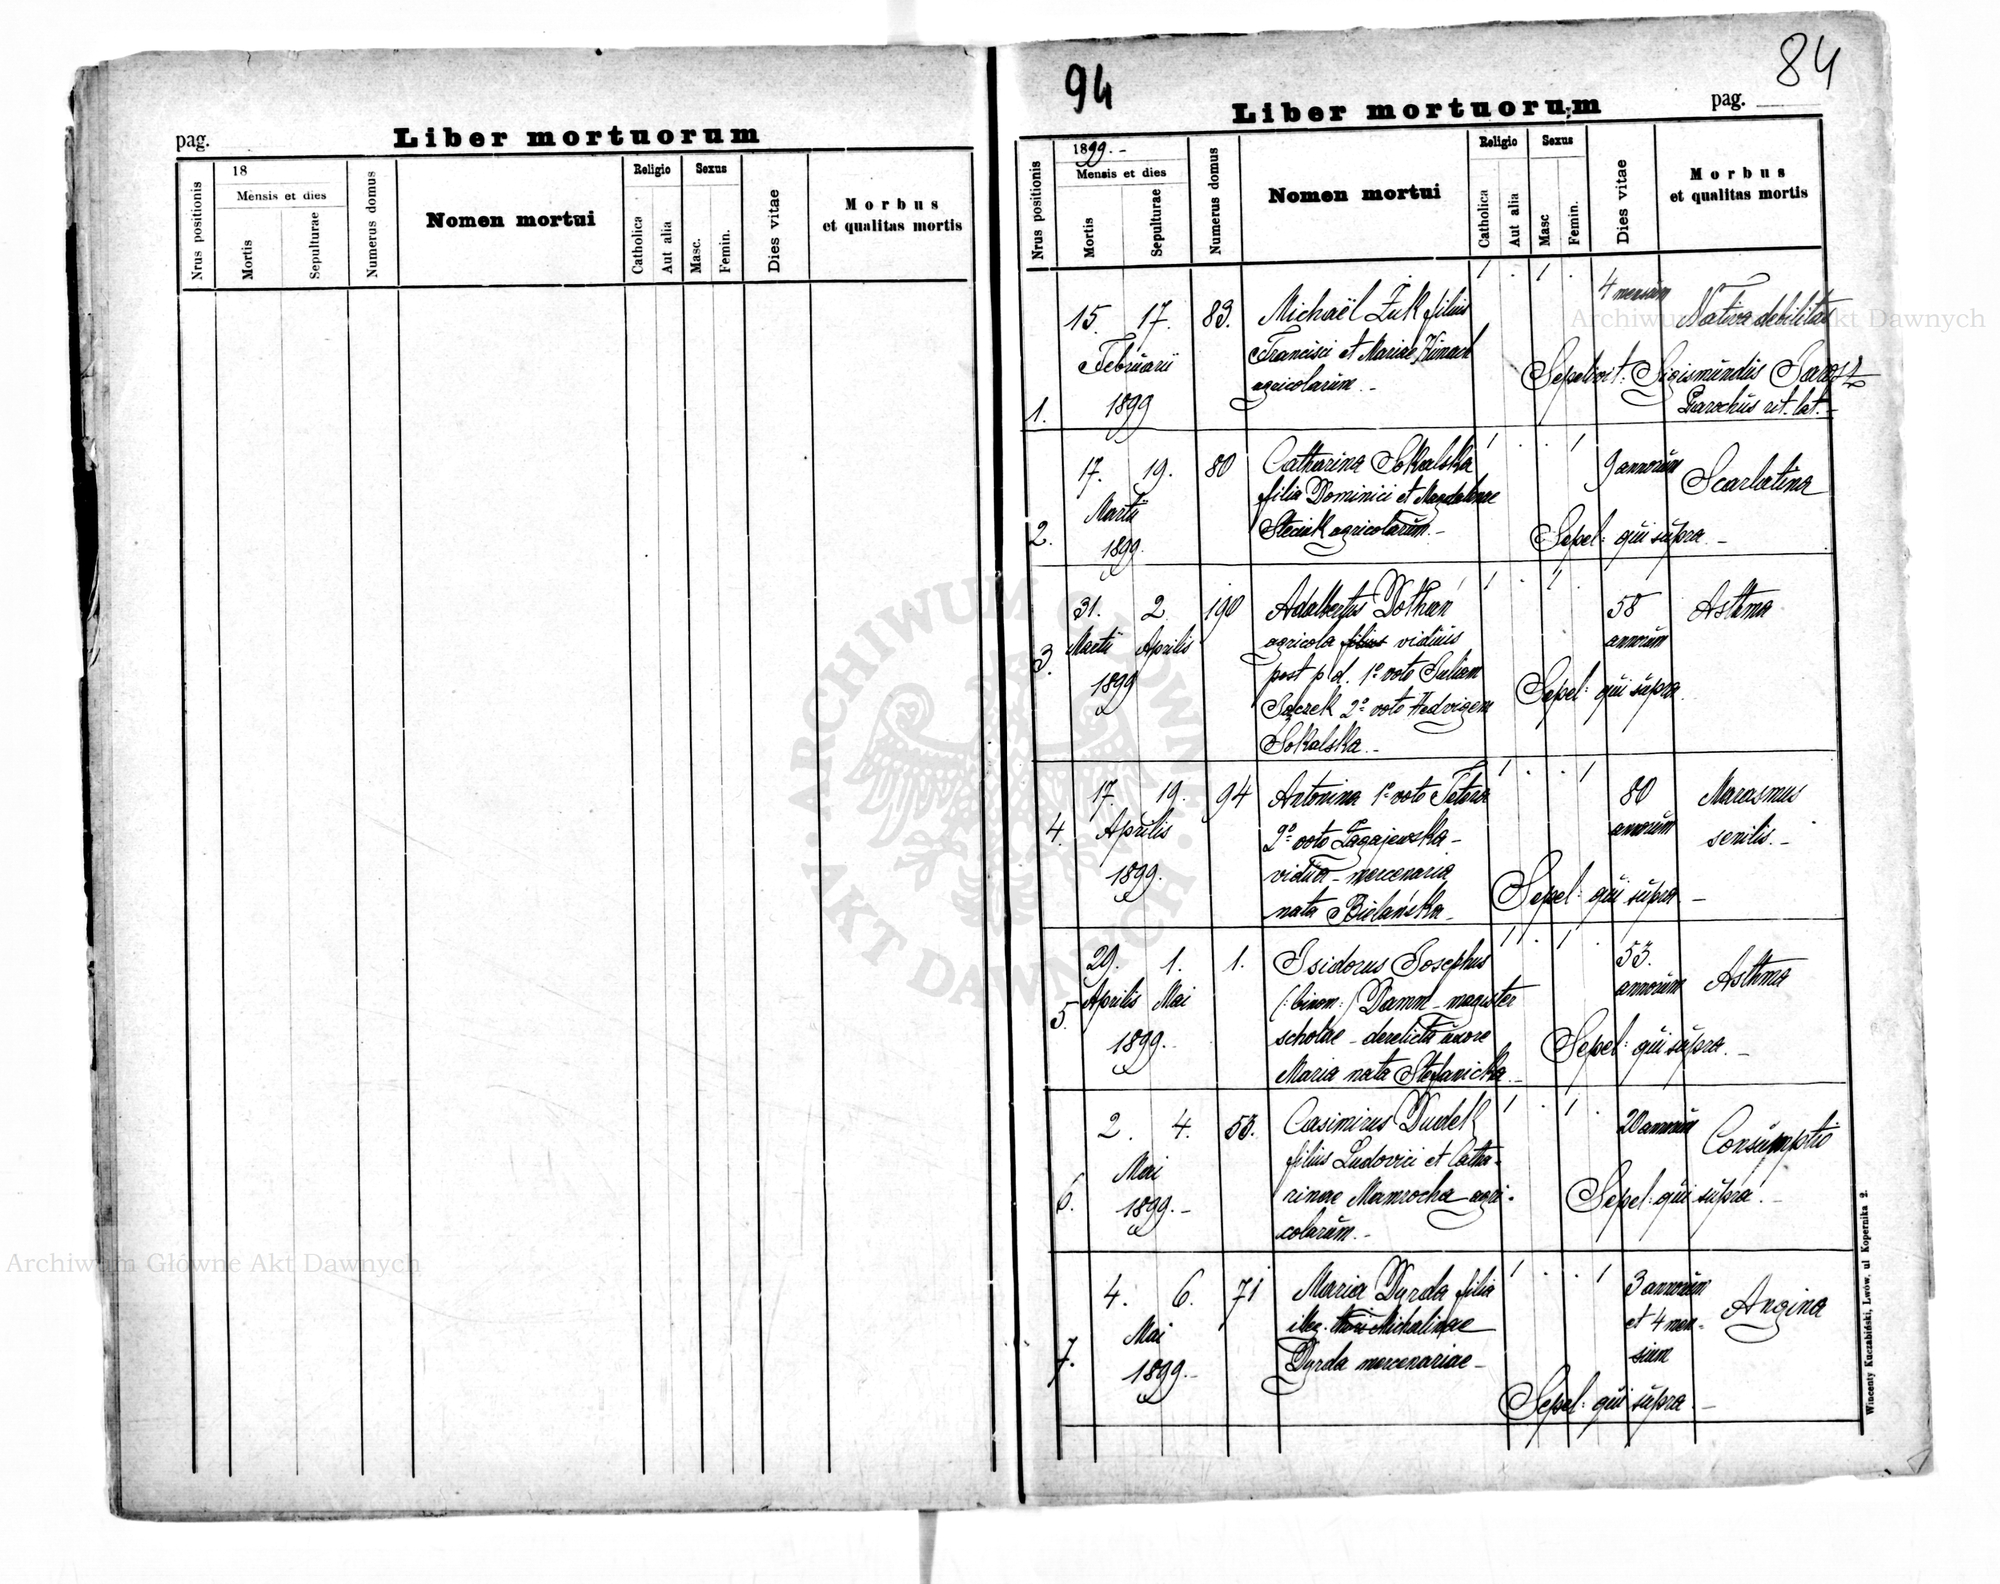 pag.
Liber mortuorum
Nrus positionis
18
Mensis et dies
Mortis
Sepulturae
Numerus domus
Nomen mortui
Religio
Catholica
Aut alia
Sexus
Masc.
Femin.
Dies vitae
Morbus
et qualitas mortis
94
84
Liber mortuorum
pag.
Nrus positionis
1899.-
Mensis et dies
Mortis
Sepulturae
Numerus domus
Nomen mortui
Religio
Catholica
Aut alia
Sexus
Masc
Femin.
Dies vitae
Morbus
et qualitas mortis
1.
15. 17.
Februarii
1899
83.
Michaël Żuk filius
Francisci et Mariae
agricolarum.-
4 mensium
Nativa debilitas
Sepelivit: Sigismundus
Parochus rit. lat.-
2.
17. 19.
Martii
1899.
80
Catharina Sokalska
filia Dominici et Magdalenae
Steciuk agricolarum.-
9 annorum
Scarlatina
Sepel: qui supra.-
3.
31. 2.
Martii Aprilis
1899
190
Adalbertus Dothan
agricola filius viduus
post p.d. 1º voto Julian
2º voto Hedvigem
Sokalska.-
58
annorum
Asthma
Sepel: qui supra.
4.
17. 19.
Aprilis
1899.
94
Antonina 1º voto Tatara
2º voto Łagajewska-
vidua-mercenaria
nata Bielańska-
80
annorum
Marasmus
senilis.-
Sepel: qui supra.-
5.
29. 1.
Aprilis Mai
1899.-
1.
Isidorus Josephus
(:binom:) Damm-magister
scholae-derelicta uxore
Maria nata Stefanicka.-
53.
annorum
Asthma
Sepel: qui supra.-
6.
2. 4.
Mai
1899.-
53.
Casimirus Dudek
filius Ludovici et Catha-
rinae Mamrocha agri-
colarum.-
20 annorum
Consumptio
Sepel: qui supra.-
7.
4. 6.
Mai
1899.-
71
Maria Dyrda filia
illeg. Michalinae
Dyrda mercenariae-
3 annorum
et 4 men-
sium
Angina
Sepel: qui supra.-
Wincenty Kuczabiński, Lwów, ul Kopernika 2.
Archiwum Główne Akt Dawnych
Archiwum Akt Dawnych
ARCHIWUM GŁÓWNE AKT DAWNYCH